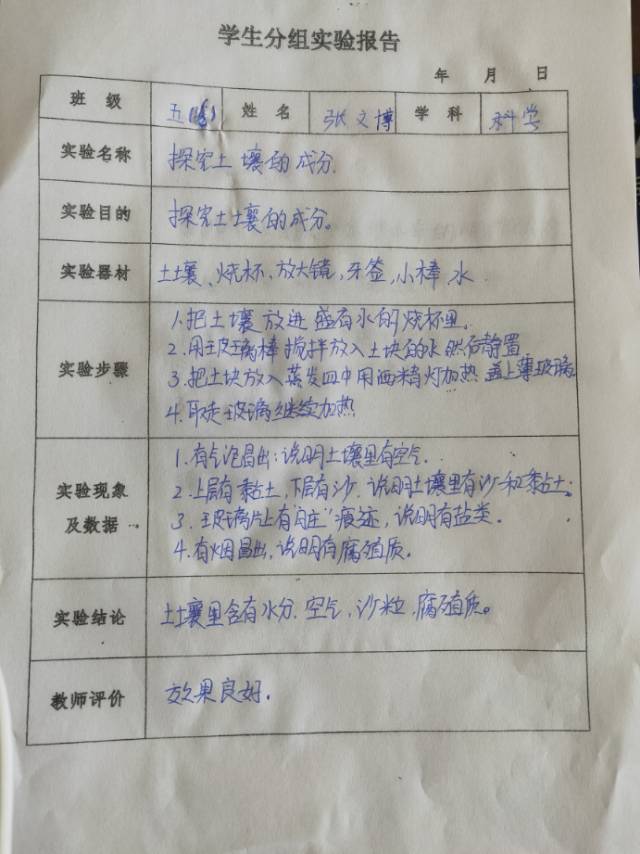 学生分组实验报告
年 月 日
班 级 五 姓 名 张文博 学 科 科学
实验名称 探究土壤的成分.
实验目的 探究土壤的成分。
实验器材 土壤、烧杯、放大镜,牙签,小棒 水.
实验步骤
1.把土壤放进盛有水的烧杯里。
2.用玻璃棒搅拌放入土块的水 然后静置
3.把土块放入蒸发皿中用酒精灯加热 盖上薄玻璃
4.取走玻璃继续加热
实验现象及数据
1.有气泡冒出:说明土壤里有空气.
2.上层有黏土,下层有沙.说明土壤里有沙和黏土.
3.玻璃片上有"痕迹,说明有盐类.
4.有烟冒出,说明有腐殖质。
实验结论 土壤里含有水分.空气,沙粒.腐殖质。
教师评价 效果良好.